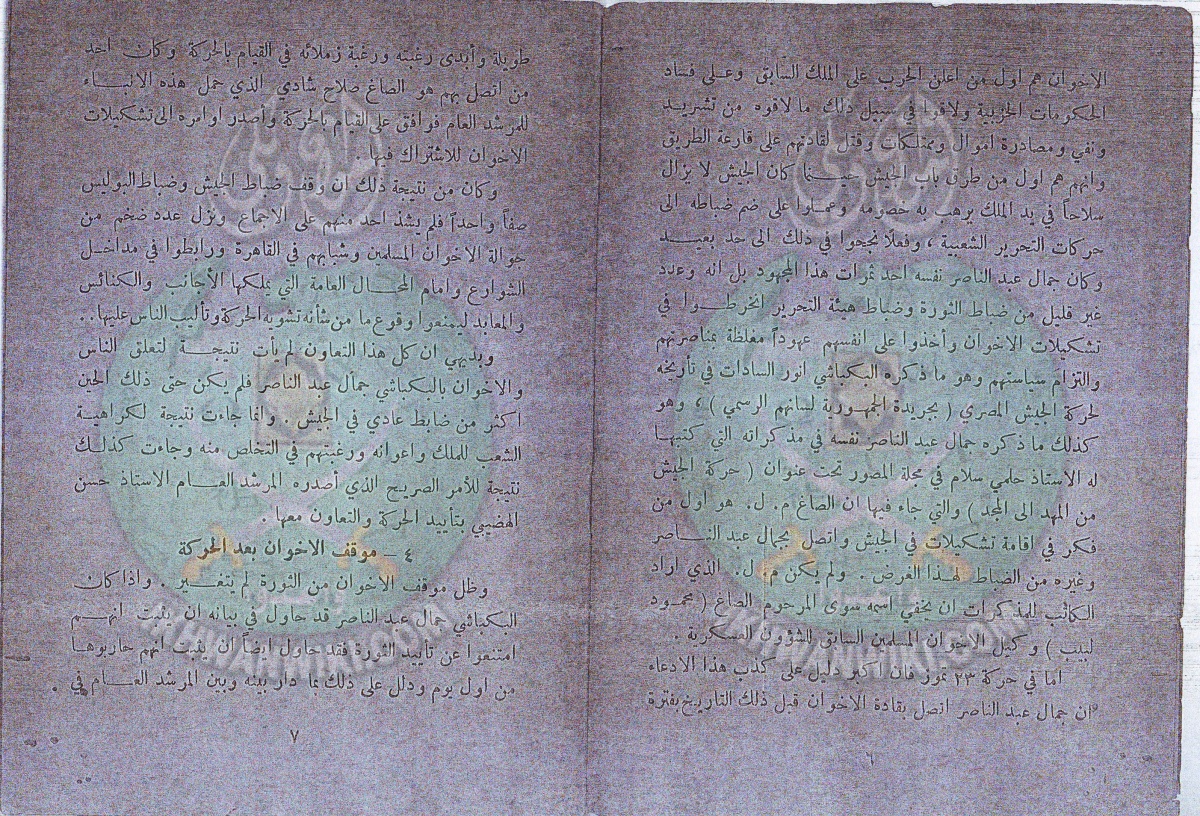 الاخوان هم اول من اعلن الحرب على الملك السابق وعلى فساد
الحكومات الحزبية ولاقوا في سبيل ذلك ما لاقوه من تشريد
ونفي ومصادرة اموال وممتلكات وقتل لقادتهم على قارعة الطريق
وانهم هم اول من طرق باب الجيش حينما كان الجيش لا يزال
سلاحاً في يد الملك يرهب به خصومه وعملوا على ضم ضباطه الى
حركات التحرير الشعبية ، وفعلا نجحوا في ذلك الى حد بعيد
وكان جمال عبد الناصر نفسه احد ثمرات هذا المجهود بل انه وعدد
غير قليل من ضباط الثورة وضباط هيئة التحرير انخرطوا في
تشكيلات الاخوان وأخذوا على انفسهم عهوداً مغلظة بمناصرتهم
والتزام سياستهم وهو ما ذكره البكباشي انور السادات في تأريخه
لحركة الجيش المصري ( بجريدة الجمهورية لسانهم الرسمي ) ، وهو
كذلك ما ذكره جمال عبد الناصر نفسه في مذكراته التي كتبها
له الاستاذ حلمي سلام في مجلة المصور تحت عنوان ( حركة الجيش
من المهد الى المجد ) والتي جاء فيها ان الصاغ م. ل. هو اول من
فكر في اقامة تشكيلات في الجيش واتصل بجمال عبد الناصر
وغيره من الضباط لهذا الغرض . ولم يكن م. ل. الذي اراد
الكاتب للمذكرات ان يخفي اسمه سوى المرحوم الصاغ ( محمود
لبيب ) وكيل الاخوان المسلمين السابق للشؤون العسكرية .
اما في حركة ٢٣ تموز فان اكبر دليل على كذب هذا الادعاء
ان جمال عبد الناصر اتصل بقادة الاخوان قبل ذلك التاريخ بفترة
٦
طويلة وأبدى رغبته ورغبة زملائه في القيام بالحركة وكان احد
من اتصل بهم هو الصاغ صلاح شادي الذي حمل هذه الانباء
للمرشد العام فوافق على القيام بالحركة وأصدر اوامره الى تشكيلات
الاخوان للاشتراك فيها .
وكان من نتيجة ذلك ان وقف ضباط الجيش وضباط البوليس
صفاً واحداً فلم يشذ احد منهم على الاجماع ونزل عدد ضخم من
جوالة الاخوان المسلمين وشبابهم في القاهرة ورابطوا في مداخل
الشوارع وامام المحال العامة التي يملكها الأجانب والكنائس
والمعابد ليمنعوا وقوع ما من شأنه تشويه الحركة وتأليب الناس عليها..
وبديهي ان كل هذا التعاون لم يأت نتيجة لتعلق الناس
والاخوان بالبكباشي جمال عبد الناصر فلم يكن حتى ذلك الحين
اكثر من ضابط عادي في الجيش . وانما جاءت نتيجة لكراهية
الشعب للملك واعوانه ورغبتهم في التخلص منه وجاءت كذلك
نتيجة للأمر الصريح الذي أصدره المرشد العام الاستاذ حسن
الهضيبي بتأييد الحركة والتعاون معها .
٤ – موقف الاخوان بعد الحركة
وظل موقف الاخوان من الثورة لم يتغير . واذا كان
البكباشي جمال عبد الناصر قد حاول في بيانه ان يثبت انهم
امتنعوا عن تأييد الثورة فقد حاول ايضاً ان يثبت انهم حاربوها
من اول يوم ودلل على ذلك بما دار بينه وبين المرشد العام في
٧